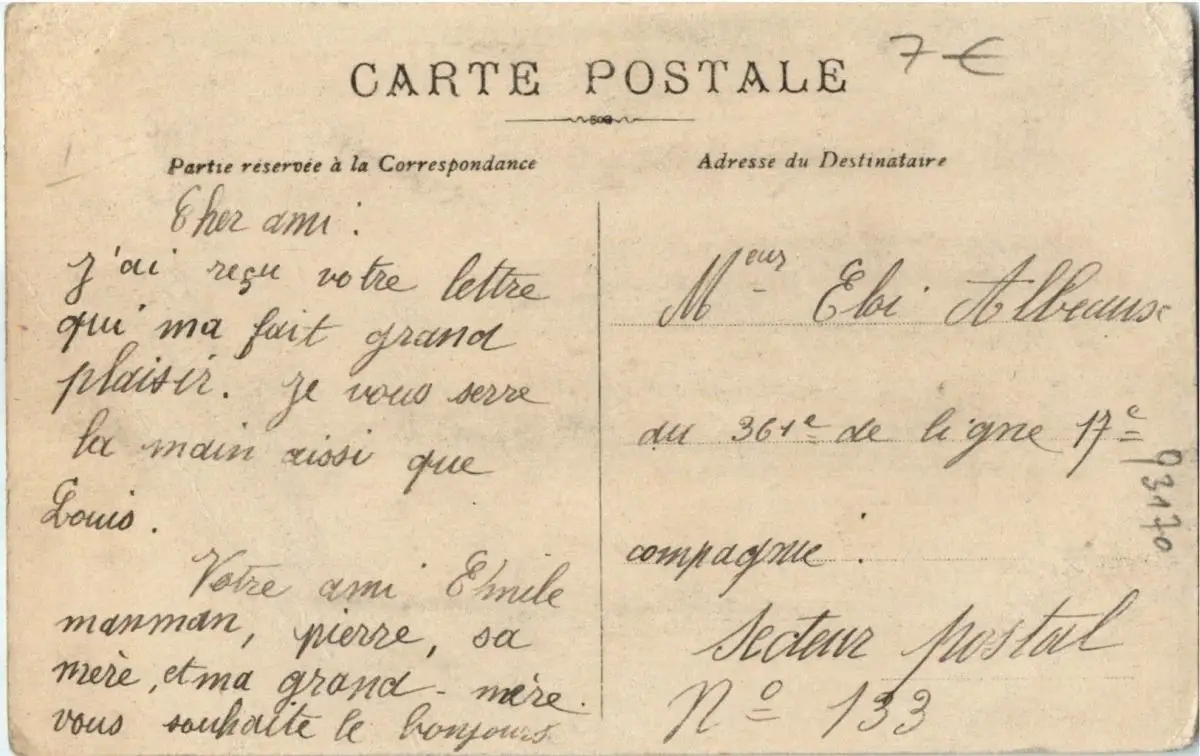 CARTE POSTALE
7 €
Partie réservée à la Correspondance
Cher ami :
J'ai reçu votre lettre
qui ma fait grand
plaisir. Je vous serre
la main aissi que
Louis.
Votre ami Emile
manman, pierre, sa
mère, et ma grand-mère.
vous souhaite le bonjours
Adresse du Destinataire
Meur Eloi
du 361e de ligne 17e
compagnie.
Secteur postal
No 133
93170